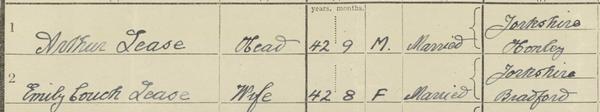 years. months.
1 Arthur Lease Head 42 9 M. Married Yorkshire Honley
2 Emily Couch Lease Wife 42 8 F Married Yorkshire Bradford